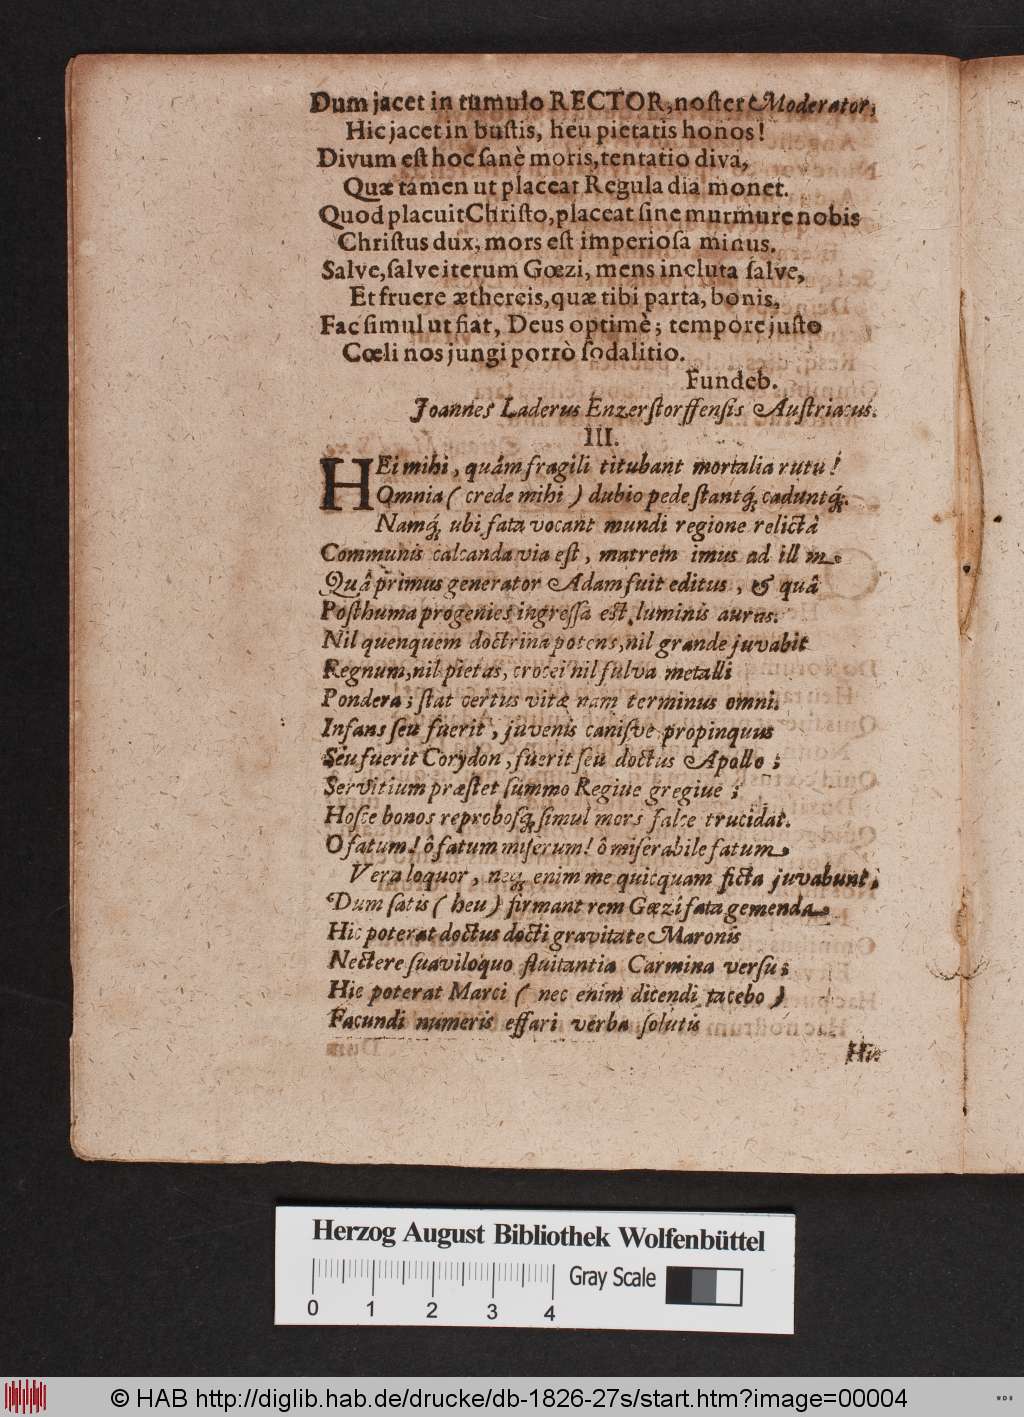 Dum jacet in tumulo RECTOR, noſter & Moderator,
Hic jacet in buſtis, heu pietatis honos!
Divum eſt hoc ſanè moris, tentatio diva,
Quæ tamen ut placeat Regula dia monet.
Quod placuit Chriſto, placeat ſine murmure nobis
Chriſtus dux, mors eſt imperioſa minus.
Salve, ſalve iterum Gœzi, mens incluta ſalve,
Et fruere æthereis, quæ tibi parta, bonis,
Fac ſimul ut fiat, Deus optimè; tempore juſto
Cœli nos jungi porrò ſodalitio.
Fundeb.
Joannes Laderus Enzerſtorffenſis Auſtriacus.
III.
HEi mihi, quâm fragili titubant mortalia rutu!
Omnia (crede mihi) dubio pede ſtantq́; caduntq́;.
Namq́; ubi fata vocant mundi regione relictâ
Communis calcanda via eſt, matrem imus ad ill m
Quâ primus generator Adam fuit editus, & quâ
Poſthuma progenies ingreſſa eſt luminis auras.
Nil quenquem doctrina potens, nil grande juvabit
Regnum, nil pietas, crocei nil fulva metalli
Pondera; ſtat certus vitæ nam terminus omni.
Infans ſeu fuerit, juvenis caniſve propinquus
Seu fuerit Corydon, fuerit ſeu doctus Apollo;
Servitium præſtet ſummo Regiue gregiue;
Hoſce bonos reproboſq́; ſimul mors falce trucidat.
O fatum! ô fatum miſerum! ô miſerabile fatum
Vera loquor, neq; enim me quicquam ficta juvabunt,
Dum ſatis (heu) firmant rem Gœzi fata gemenda
Hic poterat doctus docti gravitate Maronis
Nectere ſuaviloquo fluitantia Carmina verſu;
Hic poterat Marci (nec enim dicendi tacebo)
Facundi numeris effari verba ſolutis
Hic
Herzog August Bibliothek Wolfenbüttel
Gray Scale
0 1 2 3 4
© HAB http://diglib.hab.de/drucke/db-1826-27s/start.htm?image=00004